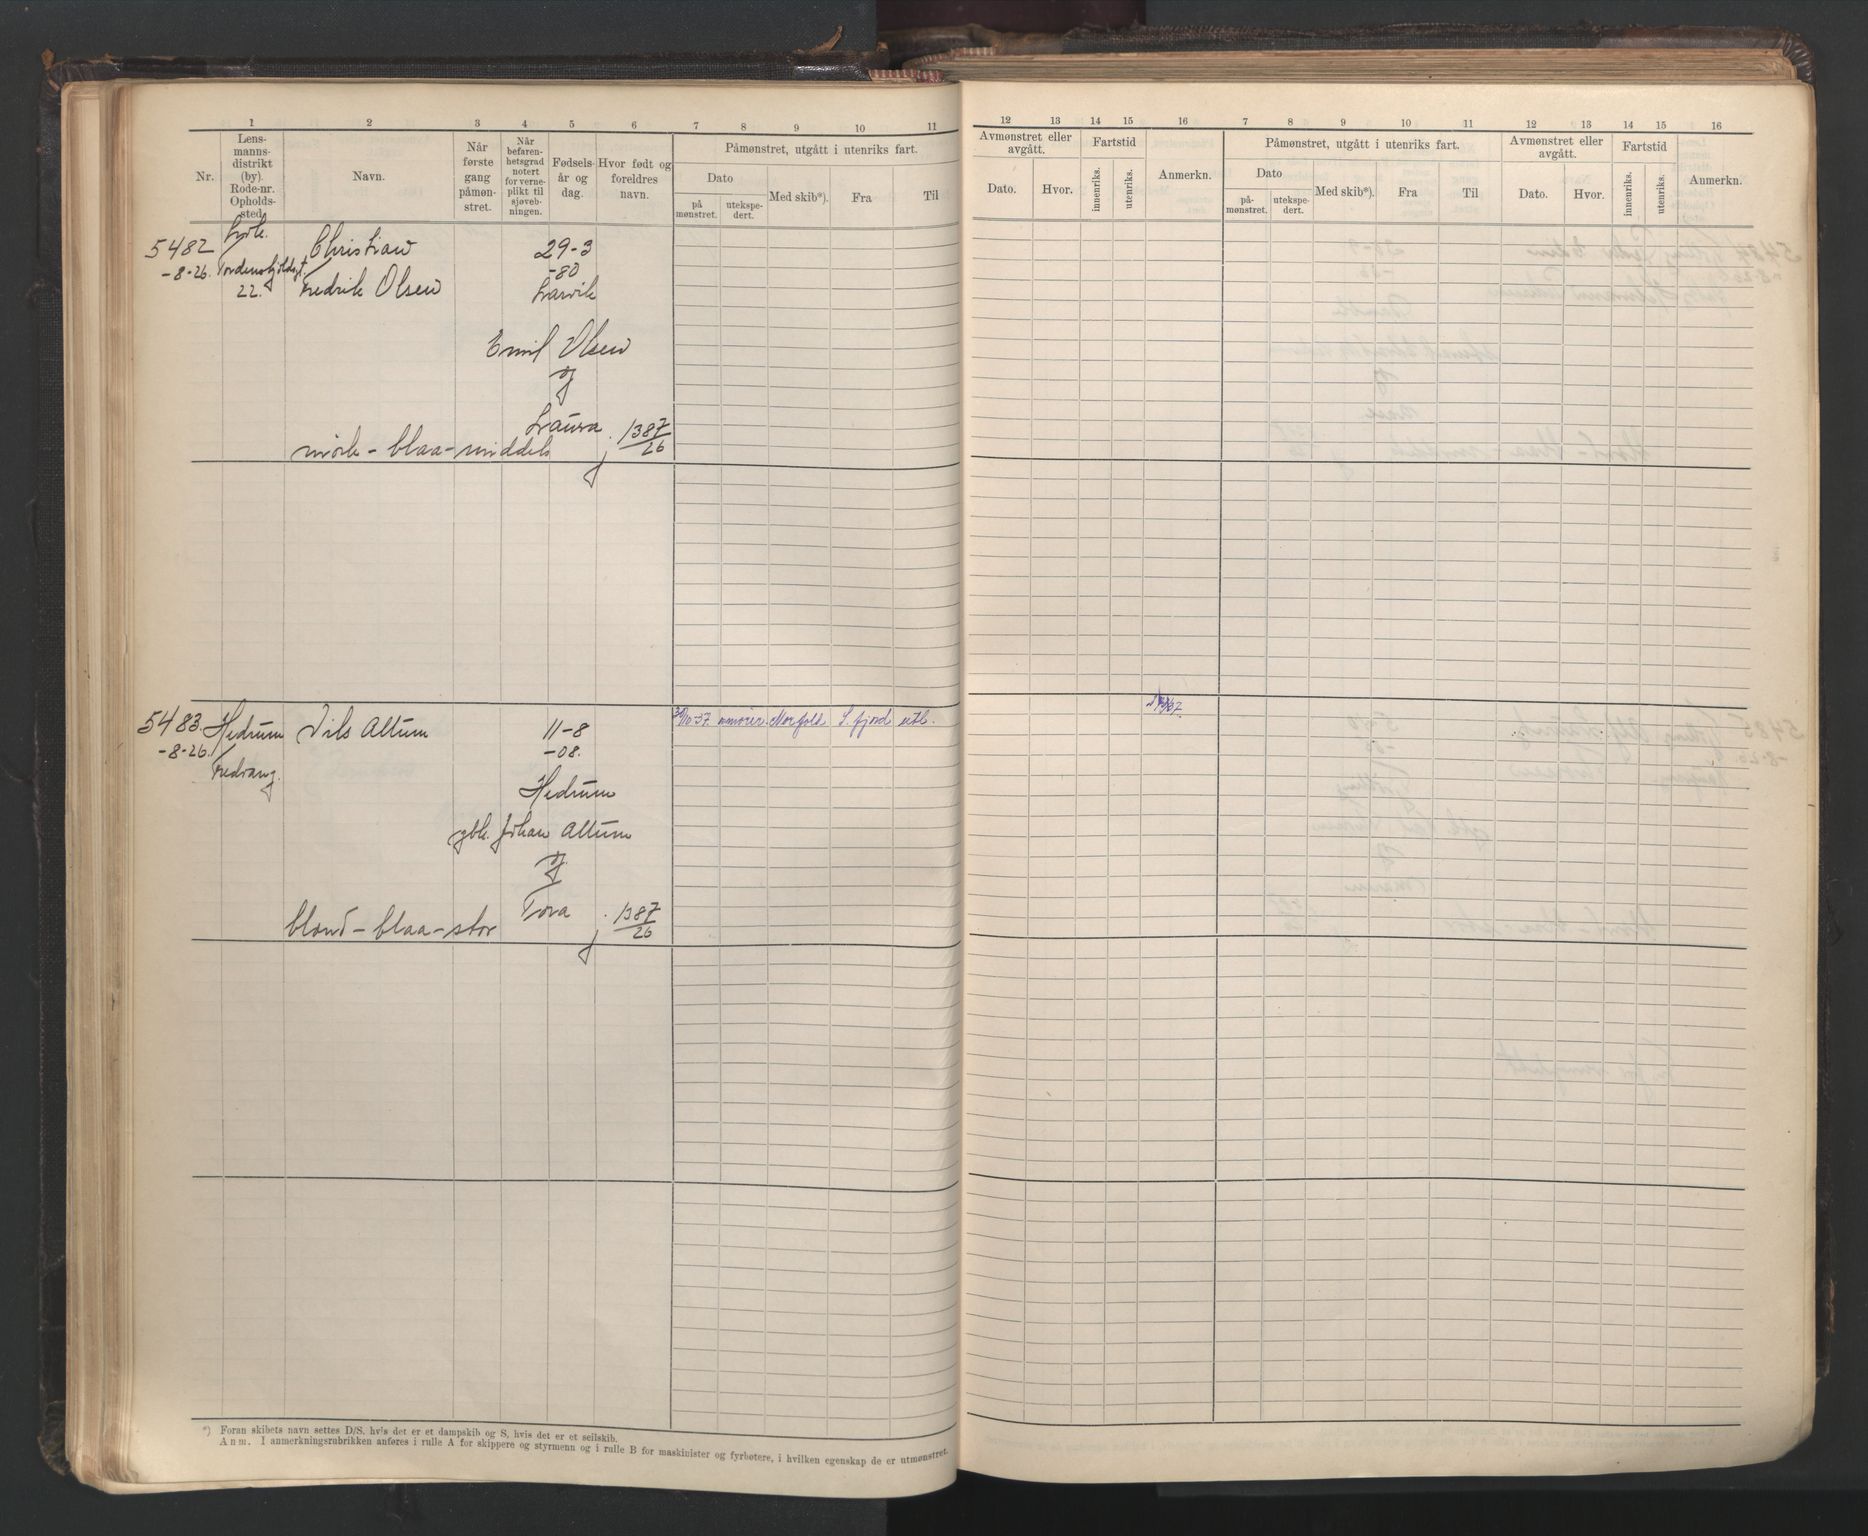 1 2 3 4 5 6 7 8 9 10 11 12 13 14 15 16 7 8 9 10 11 12 13 14 15 16
Nr.
Lens-
manns-
distrikt
(by).
Rode-nr.
Opholds-
sted.
Navn.
Når
første
gang
påmøn-
stret.
Når
befaren-
hetsgrad
notert
for verne-
plikt til
sjøveb-
ningen.
Fødsels-
år og
dag.
Hvor født og
foreldres
navn.
Påmønstret, utgått i utenriks fart.
Dato
på
mønstret.
utekspe-
dert.
Med skib*).
Fra
Til
Avmønstret eller
avgått.
Dato.
Hvor.
Fartstid
innenriks.
utenriks.
Anmerkn.
Påmønstret, utgått i utenriks fart.
Dato
på-
mønstret.
utekspe-
dert.
Med skib*).
Fra
Til
Avmønstret eller
avgått.
Dato.
Hvor.
Fartstid
innenriks.
utenriks.
Anmerkn.
5482 Christian 29-3
-8-26. Tordenskjoldsgt. -80
22. Fredrik Olsen Larvik
Emil Olsen
og
Laura
mörk-blaa-middels j. 1387/26
5483. Hedrum Nils Allum 11-8
-8-26. -08.
Hedrum
gbr. Johan Allum
og
Tora
blond-blaa-stor j. 1387/26
Norfold S.fjord utl.
*) Foran skibets navn settes D/S. hvis det er et dampskib og S, hvis det er et seilskib.
Anm. I anmerkningsrubrikken anføres i rulle A for skippere og styrmenn og i rulle B for maskinister og fyrbøtere, i hvilken egenskap de er utmønstret.